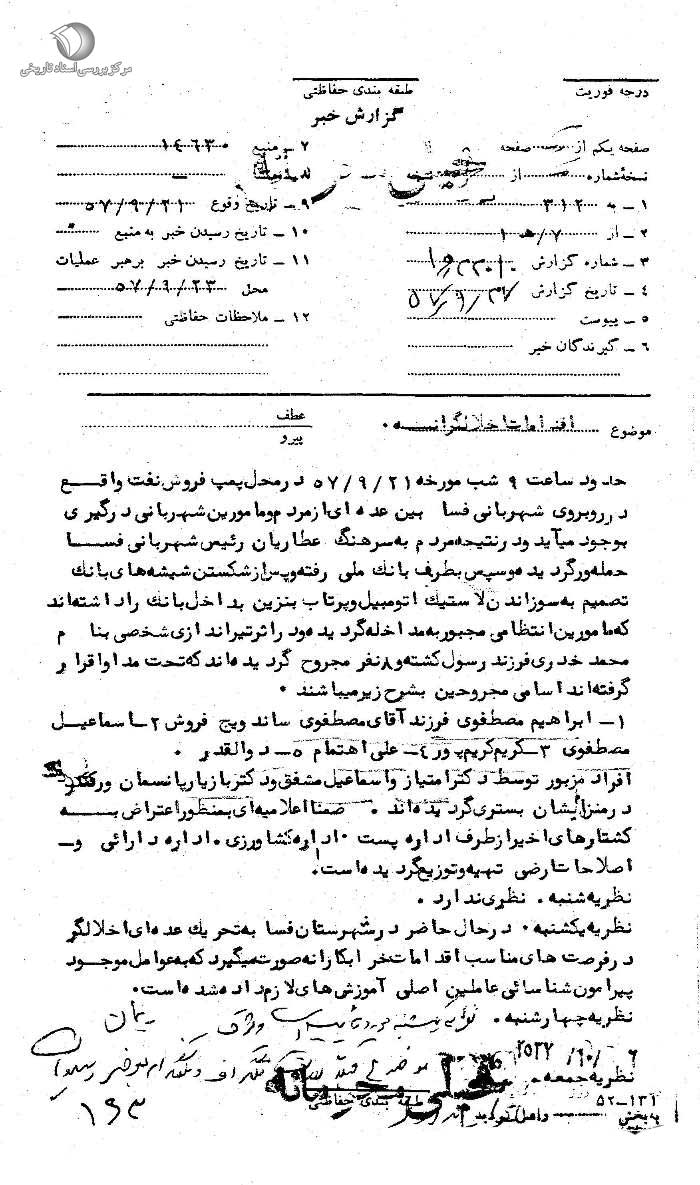 مرکز بررسی اسناد تاریخی
درجه فوریت
طبقه بندی حفاظتی
گزارش خبر
صفحه یکم از صفحه
نسخه شماره از نسخه
۱ـ به ۳۱۲
۲ـ از ۷/هـ ۱
۳ـ شماره گزارش
۴ـ تاریخ گزارش
۵ـ پیوست
۶ـ گیرندگان خبر
۷ـ منبع ۱۴۶۳۰
۹ـ تاریخ وقوع ۵۷/۹/۲۱
۱۰ـ تاریخ رسیدن خبر به منبع
۱۱ـ تاریخ رسیدن خبر برهبر عملیات
محل ۵۷/۹/۲۳
۱۲ـ ملاحظات حفاظتی
موضوع اقدامات اخلالگرانه ۰
عطف
پیرو
حدود ساعت ۹ شب مورخه ۵۷/۹/۲۱ در محل پمپ فروش نفت واقع
در روبروی شهربانی فسا بین عده ای از مردم و مامورین شهربانی درگیری
بوجود میآید و در نتیجه مردم به سرهنگ عطاریان رئیس شهربانی فسا
حمله ور گردیده و سپس بطرف بانک ملی رفته و پس از شکستن شیشه های بانک
تصمیم به سوزاندن لاستیک اتومبیل و پرتاب بنزین بداخل بانک را داشته اند
که مامورین انتظامی مجبور به مداخله گردیده و در اثر تیراندازی شخصی بنام
محمد خدری فرزند رسول کشته و ۸ نفر مجروح گردیده اند که تحت مداوا قرار
گرفته اند اسامی مجروحین بشرح زیر میباشند ۰
۱ـ ابراهیم مصطفوی فرزند آقای مصطفوی ساندویچ فروش ۲ـ اسماعیل
مصطفوی ۳ـ کریم کریم پور ۴ـ علی اهتمام ۵ـ ذوالقدر ۰
افراد مزبور توسط دکتر امتیاز و اسماعیل مشفق و دکتر بازیار پانسمان و
در منزل ایشان بستری گردیده اند ۰ ضمنا اعلامیه ای بمنظور اعتراض به
کشتارهای اخیر از طرف اداره پست ۰ اداره کشاورزی ۰ اداره دارائی و
اصلاحات ارضی تهیه و توزیع گردیده است.
نظریه شنبه ۰ نظری ندارد ۰
نظریه یکشنبه ۰ در حال حاضر در شهرستان فسا به تحریک عده ای اخلالگر
در فرصت های مناسب اقدامات خرابکارانه صورت میگیرد که به عوامل موجود
پیرامون شناسائی عاملین اصلی آموزش های لازم داده شده است ۰
نظریه چهارشنبه ۰ نظریه یکشنبه مورد تأیید است
نظریه جمعه
طبقه بندی حفاظتی
۵۲-۱۳۱
به بخش
۱۹۳